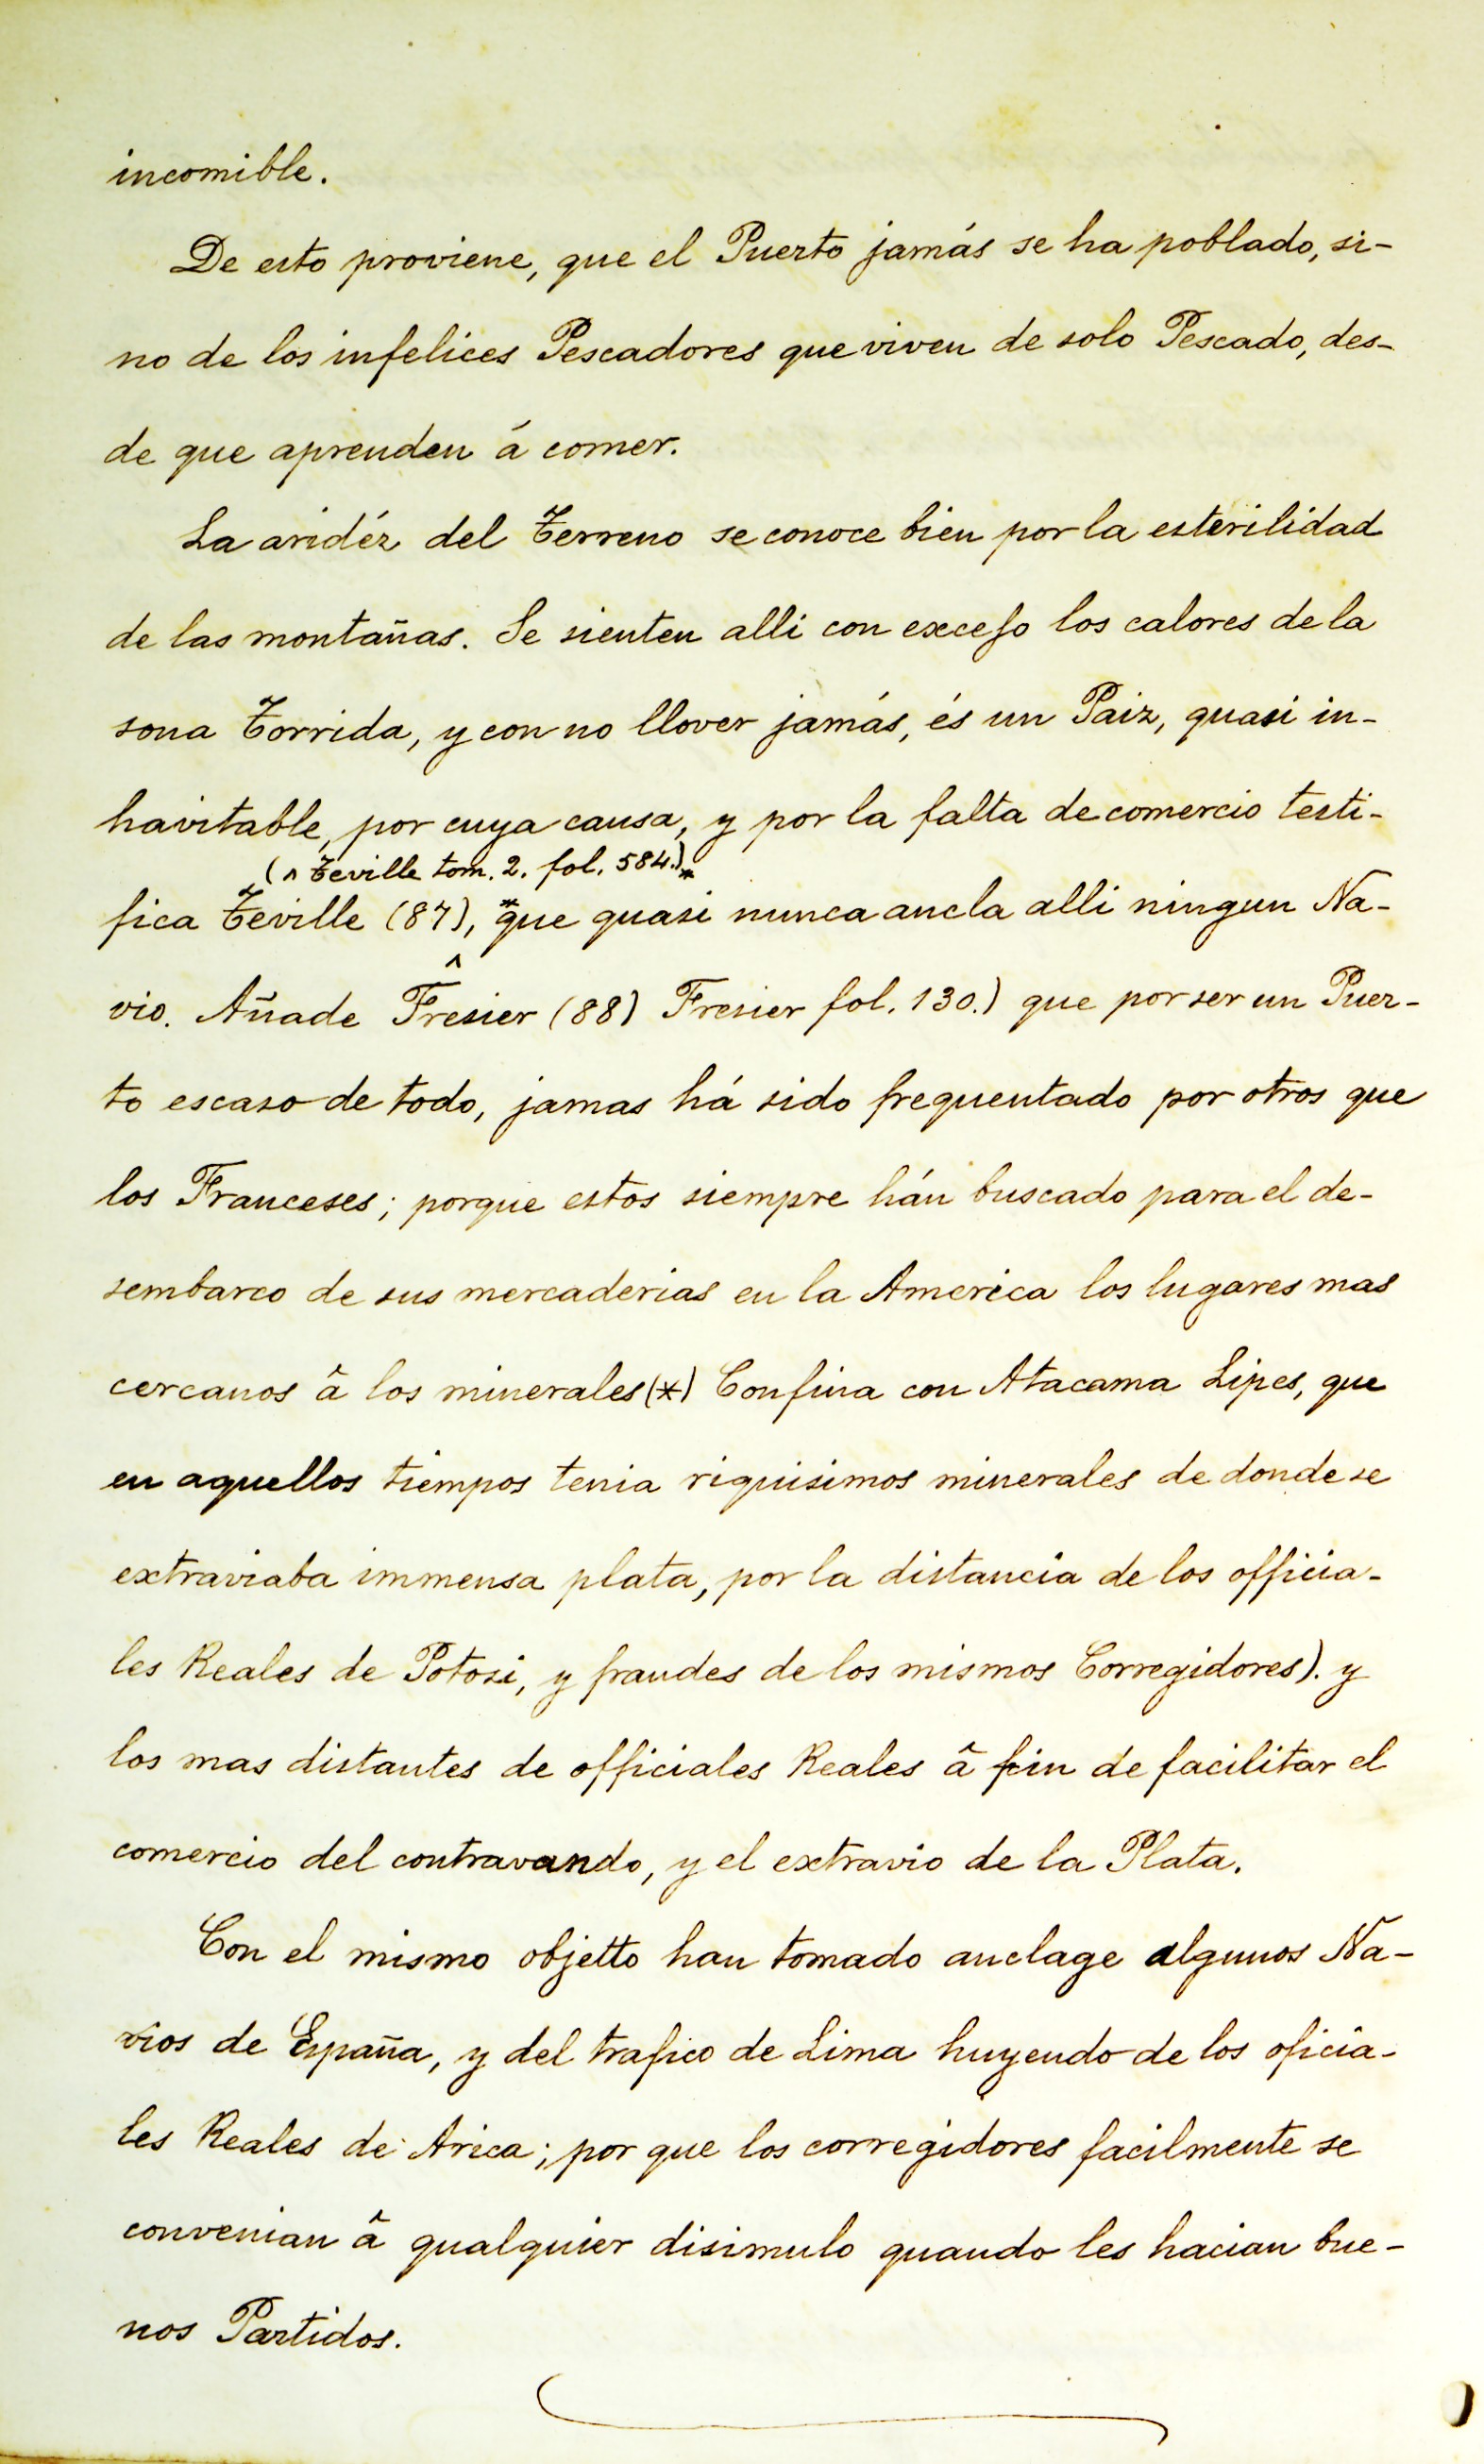 incomible.
De esto proviene, que el Puerto jamás se ha poblado, si-
no de los infelices Pescadores que viven de solo Pescado, des-
de que aprenden á comer.
La aridéz del Terreno se conoce bien por la esterilidad
de las montañas. Se sienten alli con excesso los calores de la
sona Torrida, y con no llover jamás, és un Paiz, quasi in-
havitable, por cuya causa, y por la falta de comercio testi-
(^ Teville tom. 2. fol. 584.)*
fica Teville (87), *que quasi nunca ancla alli ningun Na-
^
vio. Añade Fresier (88) Fresier fol. 130.) que por ser un Puer-
to escaso de todo, jamas há sido frequentado por otros que
los Franceses; porque estos siempre hán buscado para el de-
sembarco de sus mercaderias en la America los lugares mas
cercanos â los minerales(*) Confina con Atacama Lipes, que
en aquellos tiempos tenia riquisimos minerales de donde se
extraviaba immensa plata, por la distancia de los officia-
les Reales de Potosi, y fraudes de los mismos Corregidores). y
los mas distantes de officiales Reales â fin de facilitar el
comercio del contravando, y el extravio de la Plata.
Con el mismo objetto han tomado anclage algunos Na-
vios de España, y del trafico de Lima huyendo de los oficia-
les Reales de Arica; por que los corregidores facilmente se
convenian â qualquier disimulo quando les hacian bue-
nos Partidos.